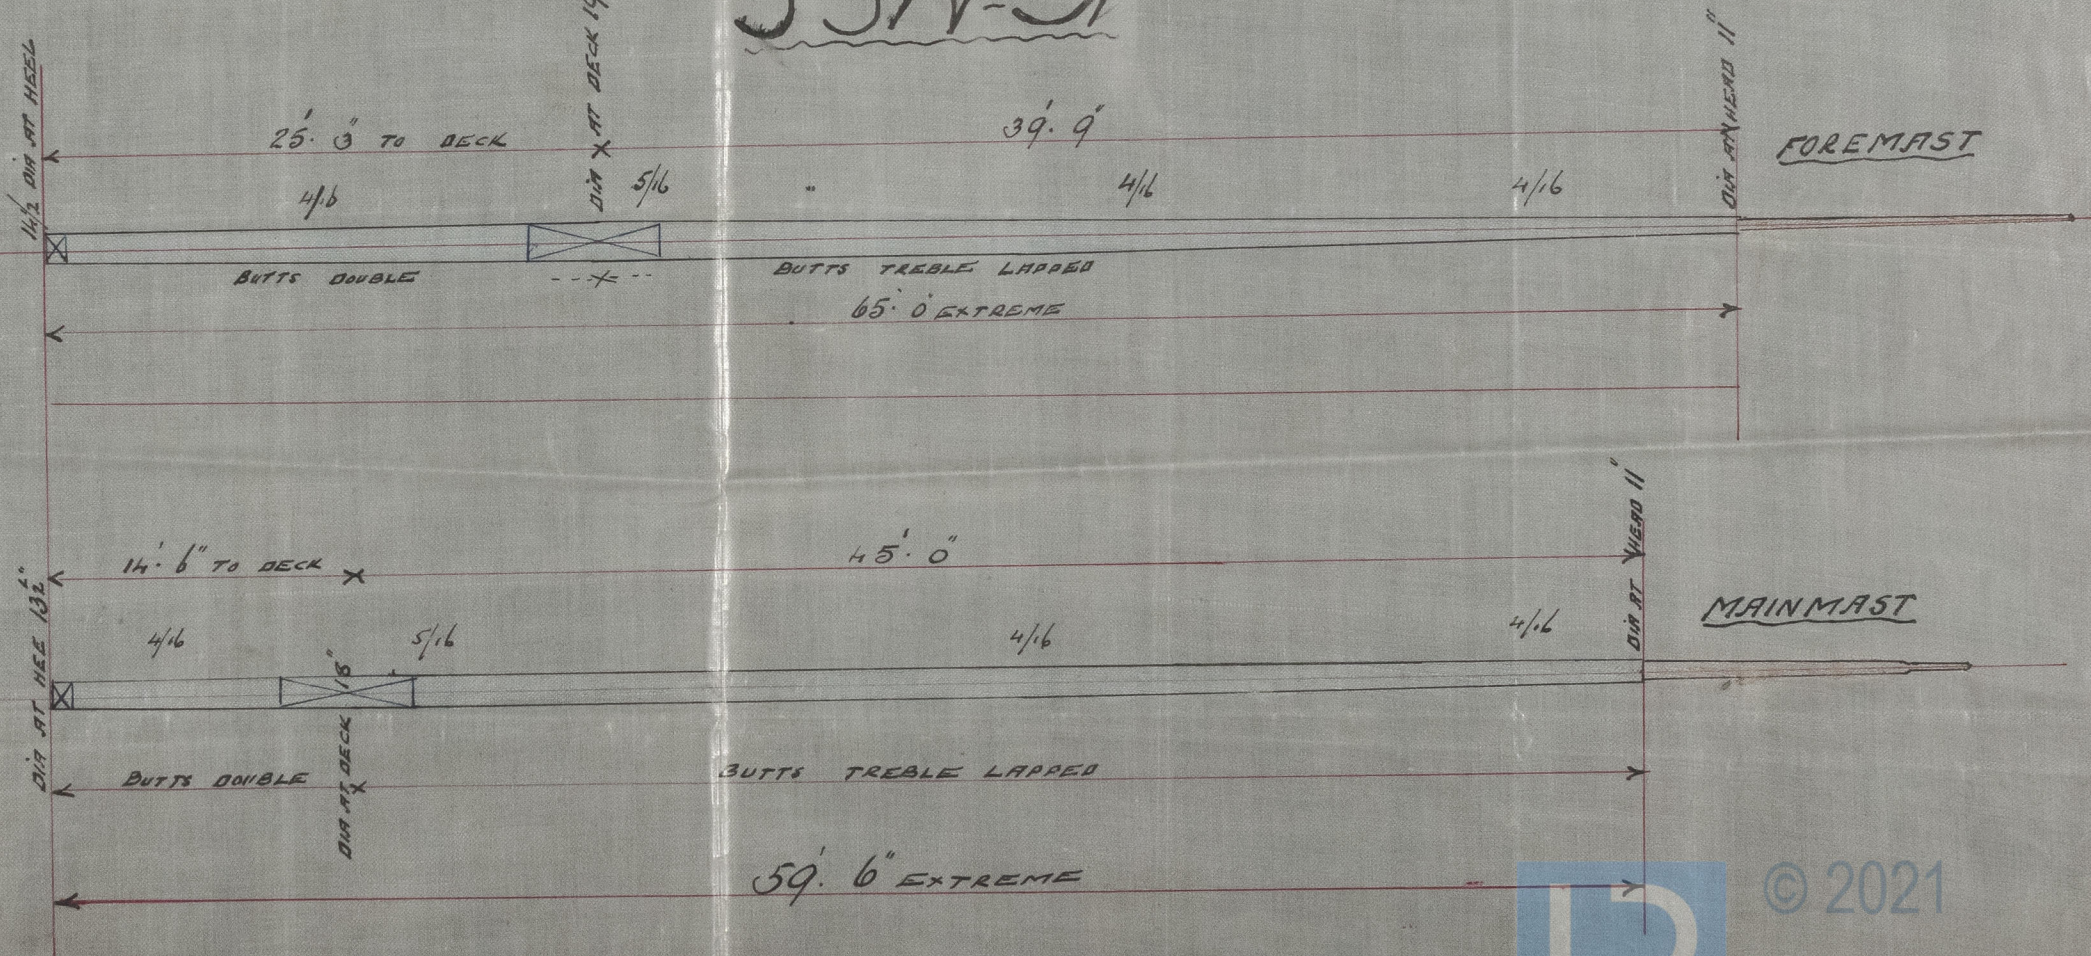 14½ DIA AT HEEL
25'. 3" TO DECK
DIA AT DECK
39'. 9"
DIA AT HEAD 11"
FOREMAST
4/16
5/16
4/16
4/16
BUTTS DOUBLE
BUTTS TREBLE LAPPED
65'. 0" EXTREME
DIA AT HEE 13½"
14'. 6" TO DECK
45'. 0"
DIA AT HEAD 11"
MAINMAST
4/16
5/16
4/16
4/16
DIA AT DECK 18"
BUTTS DOUBLE
BUTTS TREBLE LAPPED
59'. 6" EXTREME
© 2021